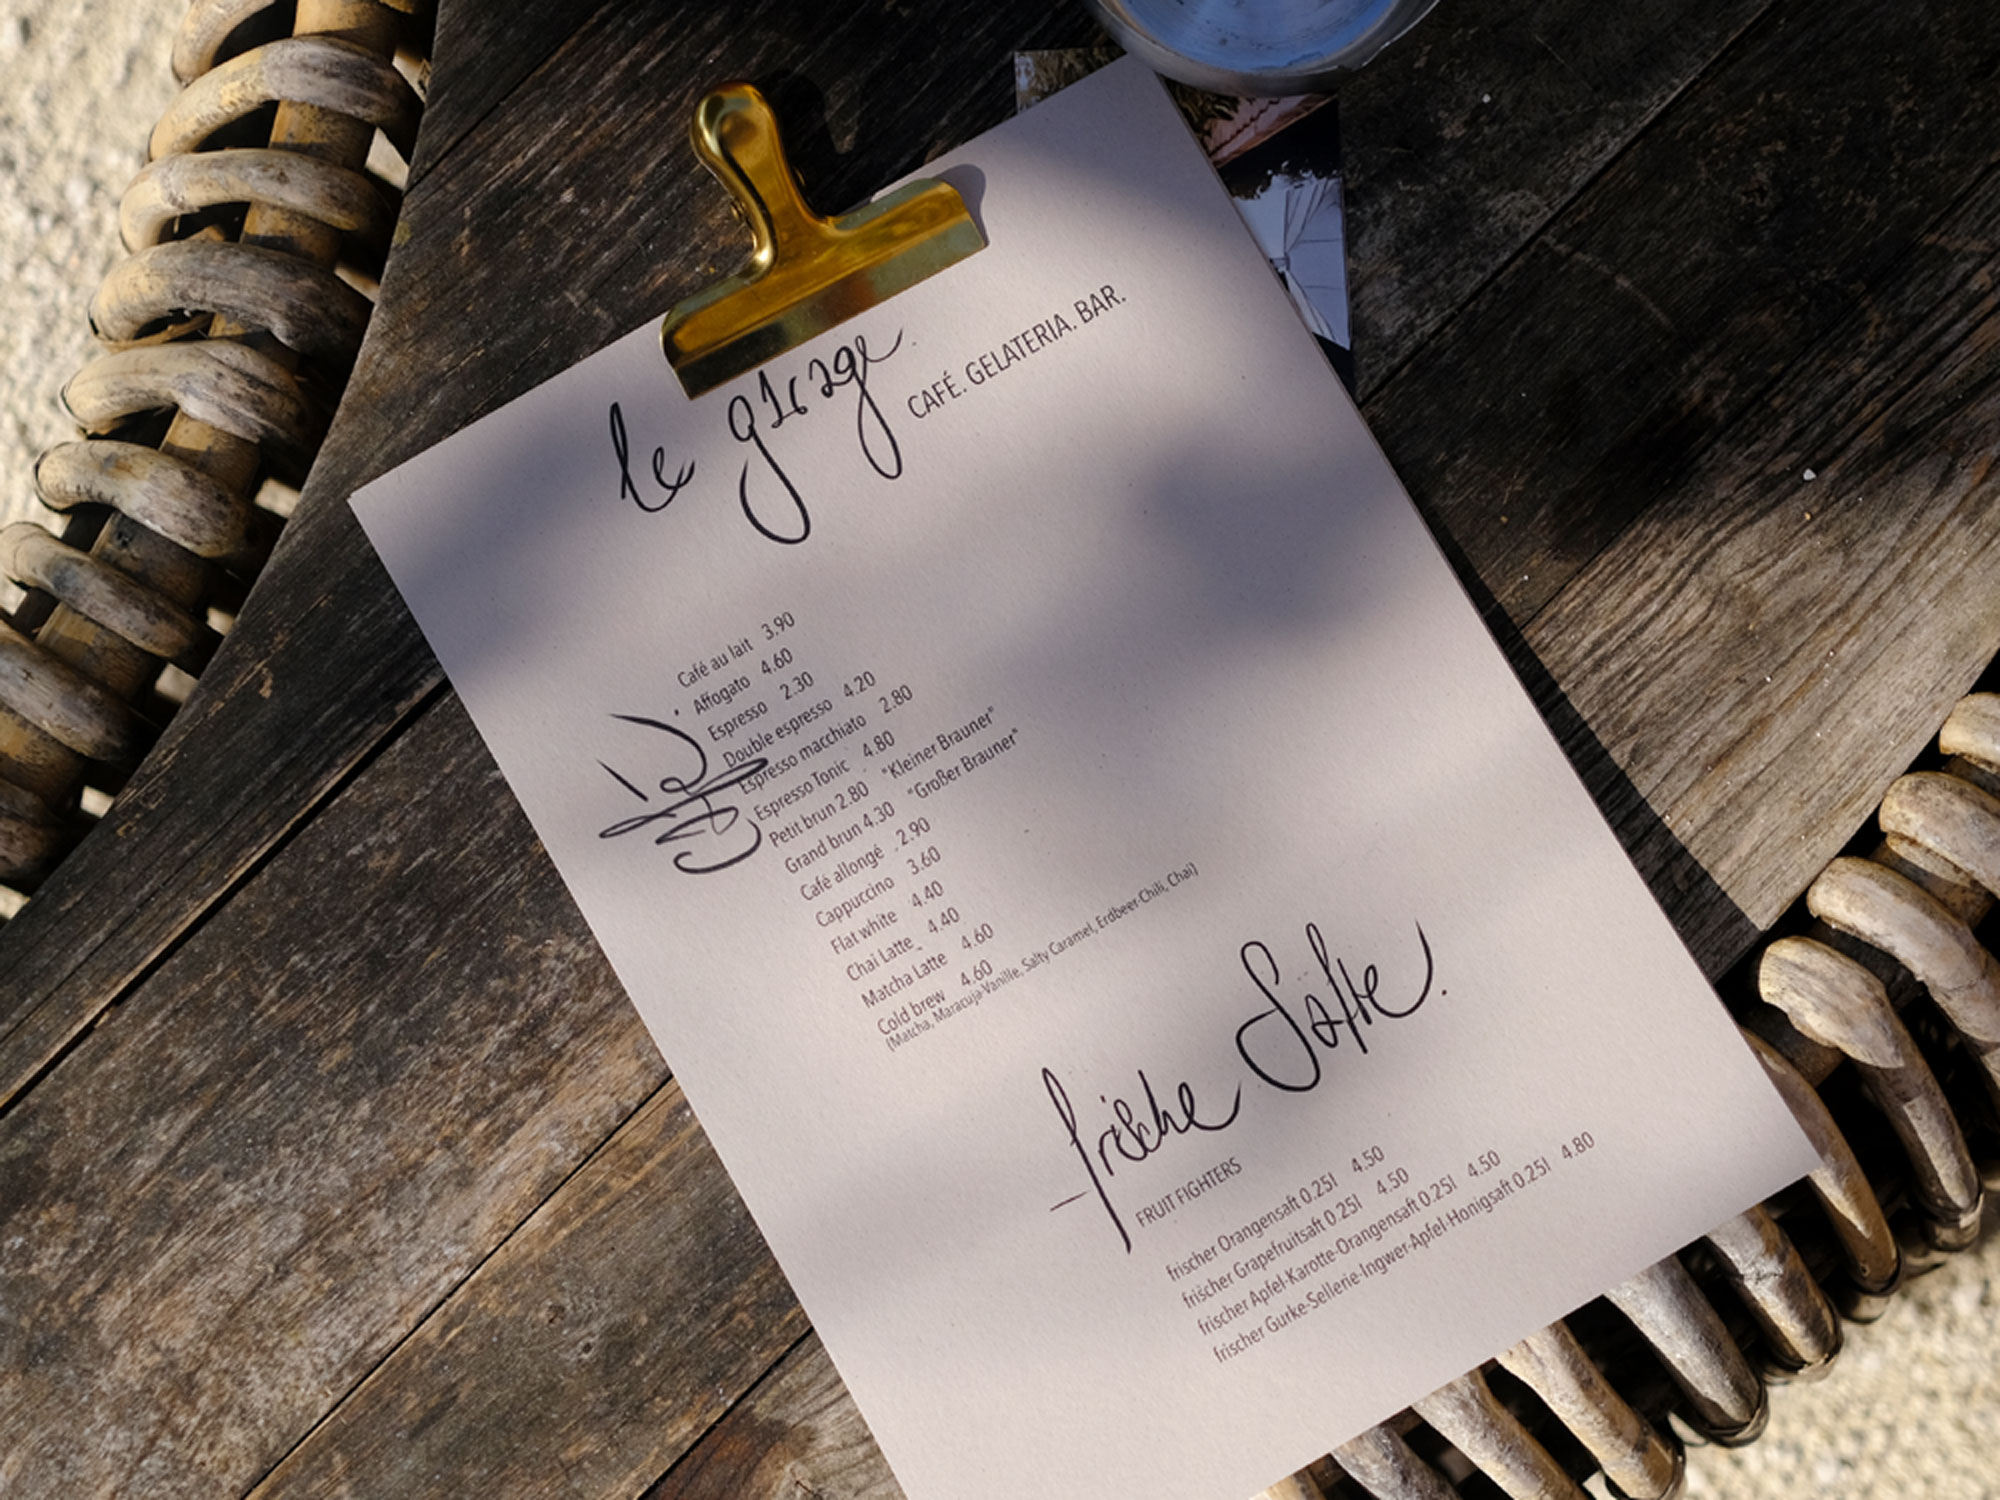 le garage.
CAFÉ. GELATERIA. BAR.
Café au lait 3.90
Affogato 4.60
Espresso 2.30
Double espresso 4.20
Espresso macchiato 2.80
Espresso Tonic 4.80
Petit brun 2.80 "Kleiner Brauner"
Grand brun 4.30 "Großer Brauner"
Café allongé 2.90
Cappuccino 3.60
Flat white 4.40
Chai Latte 4.40
Matcha Latte 4.60
Cold brew 4.60
(Matcha, Maracuja-Vanille, Salty Caramel, Erdbeer-Chili, Chai)
frische Säfte.
FRUIT FIGHTERS
frischer Orangensaft 0.25l 4.50
frischer Grapefruitsaft 0.25l 4.50
frischer Apfel-Karotte-Orangensaft 0.25l 4.50
frischer Gurke-Sellerie-Ingwer-Apfel-Honigsaft 0.25l 4.80